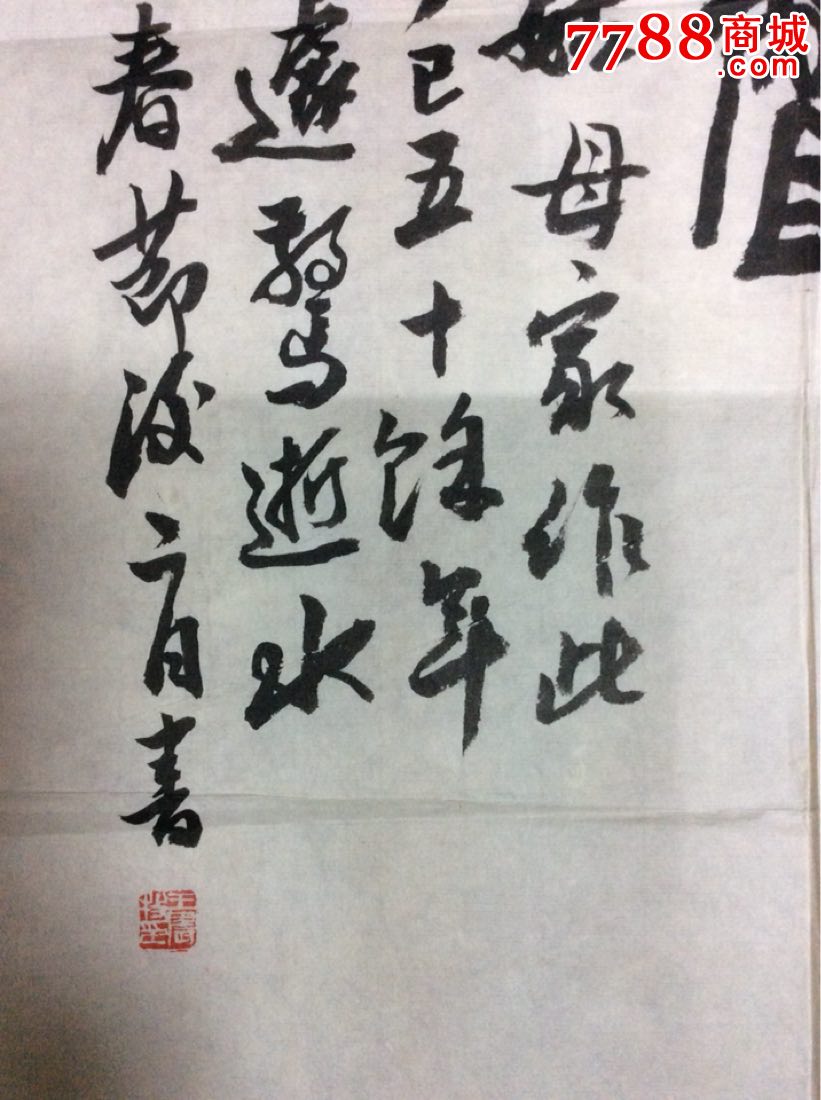 7788商城
.com
母家作此
已五十餘年
遽驚逝水
春節後二日書